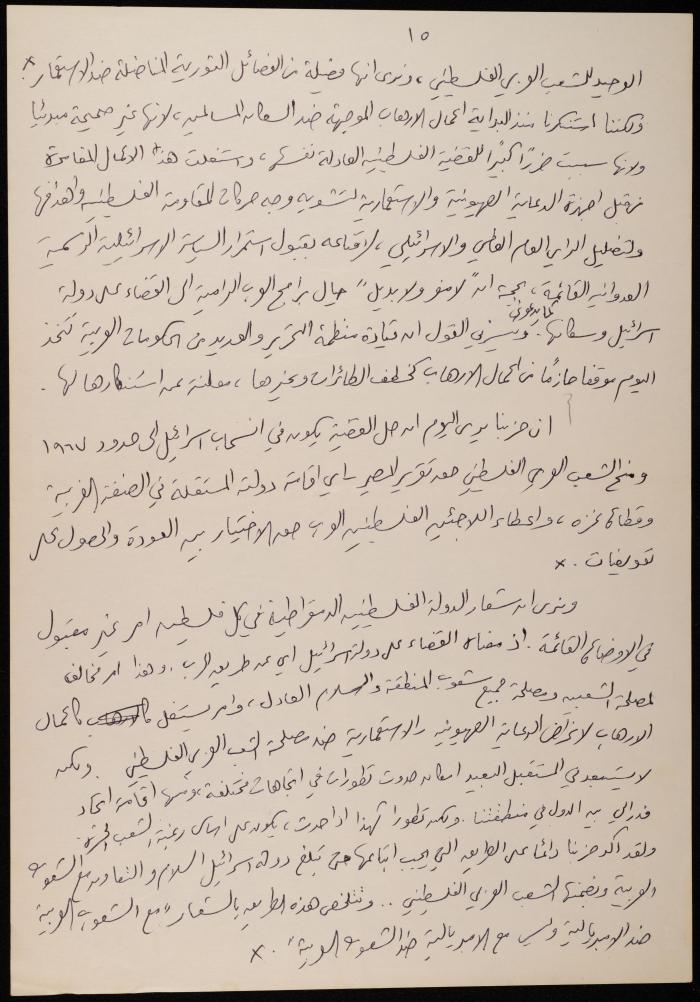 ١٥
الوحيد للشعب العربي الفلسطيني، ونرى انها فصيلة من الفصائل الثورية المناضلة ضد الاستعمار. x
ولكننا استنكرنا منذ البداية اعمال الارهاب الموجهة ضد السكان المسالمين، لانها غير صحيحة مبدئيا
ولانها سببت ضررًا كبيرًا للقضية الفلسطينية العادلة نفسها، واستغلت هذه الاعمال المغامرة
من قبل اجهزة الدعاية الصهيونية والاستعمارية لتشويه وجه حركات المقاومة الفلسطينية واهدافها
ولتضليل الرأي العام العالمي والاسرائيلي، لاقناعه بقبول استمرار السياسة الاسرائيلية الرسمية
العدوانية القائمة، بحجة انه "لا مفر ولا بديل" حيال برامج العرب الرامية الى القضاء على دولة
اسرائيل وسكانها. كما يدعون. ويسرني القول ان قيادة منظمة التحرير والعديد من الحكومات العربية تتخذ
اليوم موقفا حازمًا من اعمال الارهاب كخطف الطائرات وغيرها، معلنة عن استنكارها لها.
ان حزبنا يرى اليوم ان حل القضية يكون في انسحاب اسرائيل الى حدود ١٩٦٧
ومنح الشعب العربي الفلسطيني حق تقرير المصير بما في اقامة دولته المستقلة في الضفة الغربية
وقطاع غزه، واعطاء اللاجئين الفلسطينيين العرب حق الاختيار بين العودة والحصول على
تعويضات. x
ونرى ان شعار الدولة الفلسطينية الدمقراطية في كل فلسطين امر غير مقبول
في الاوضاع القائمة. اذ معناه القضاء على دولة اسرائيل اي عن طريق الحرب. وهذا امر مخالف
لمصلحة الشعبين ومصلحة جميع شعوب المنطقة والسلام العادل، وامر يستغل كاعمال
الارهاب لاغراض الدعاية الصهيونية والاستعمارية ضد مصلحة الشعب العربي الفلسطيني. ولكن
لا يستبعد في المستقبل البعيد امكان حدوث تطورات في اتجاهات مختلفة، ومنها اقامة اتحاد
فدرالي بين الدول في منطقتنا. ولكن تطورا كهذا اذا حدث، يكون على اساس رغبة الشعب الحرة.
ولقد اكد حزبنا دائما على الطريق التي يجب اتباعها حتى تبلغ دولة اسرائيل السلام والتعاون مع الشعوب
العربية وضمنها الشعب العربي الفلسطيني.. وتتلخص هذه الطريق بالشعار "مع الشعوب العربية
ضد الامبريالية وليس مع الامبريالية ضد الشعوب العربية". x